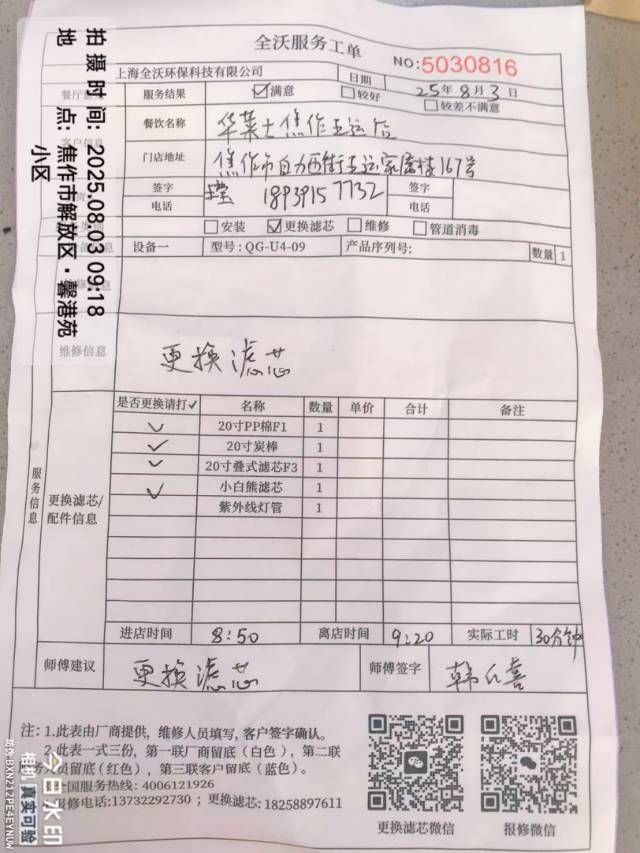 全沃服务工单
NO:5030816
上海全沃环保科技有限公司
日期 25年8月3日
服务结果 ☑满意 □较好 □较差不满意
餐饮名称 华莱士焦作主运店
门店地址 焦作市自力西街主运家属楼167号
签字 签字
电话 18939157732 电话
□安装 ☑更换滤芯 □维修 □管道消毒
设备一 型号:QG-U4-09 产品序列号: 数量 1
维修信息
更换滤芯
服务信息
更换滤芯/配件信息
是否更换请打✓ 名称 数量 单价 合计 备注
✓ 20寸PP棉F1 1
✓ 20寸炭棒 1
✓ 20寸叠式滤芯F3 1
✓ 小白熊滤芯 1
紫外线灯管 1
进店时间 8:50 离店时间 9:20 实际工时 30分钟
师傅建议 更换滤芯 师傅签字
注:1.此表由厂商提供,维修人员填写,客户签字确认。
2.此表一式三份,第一联厂商留底(白色),第二联
人员留底(红色),第三联客户留底(蓝色)。
全国服务热线:4006121926
报修电话:13732292730;更换滤芯:18258897611
更换滤芯微信
报修微信
拍摄时间:2025.08.03 09:18
地点:焦作市解放区·馨港苑
小区
今日水印
相机 真实可验